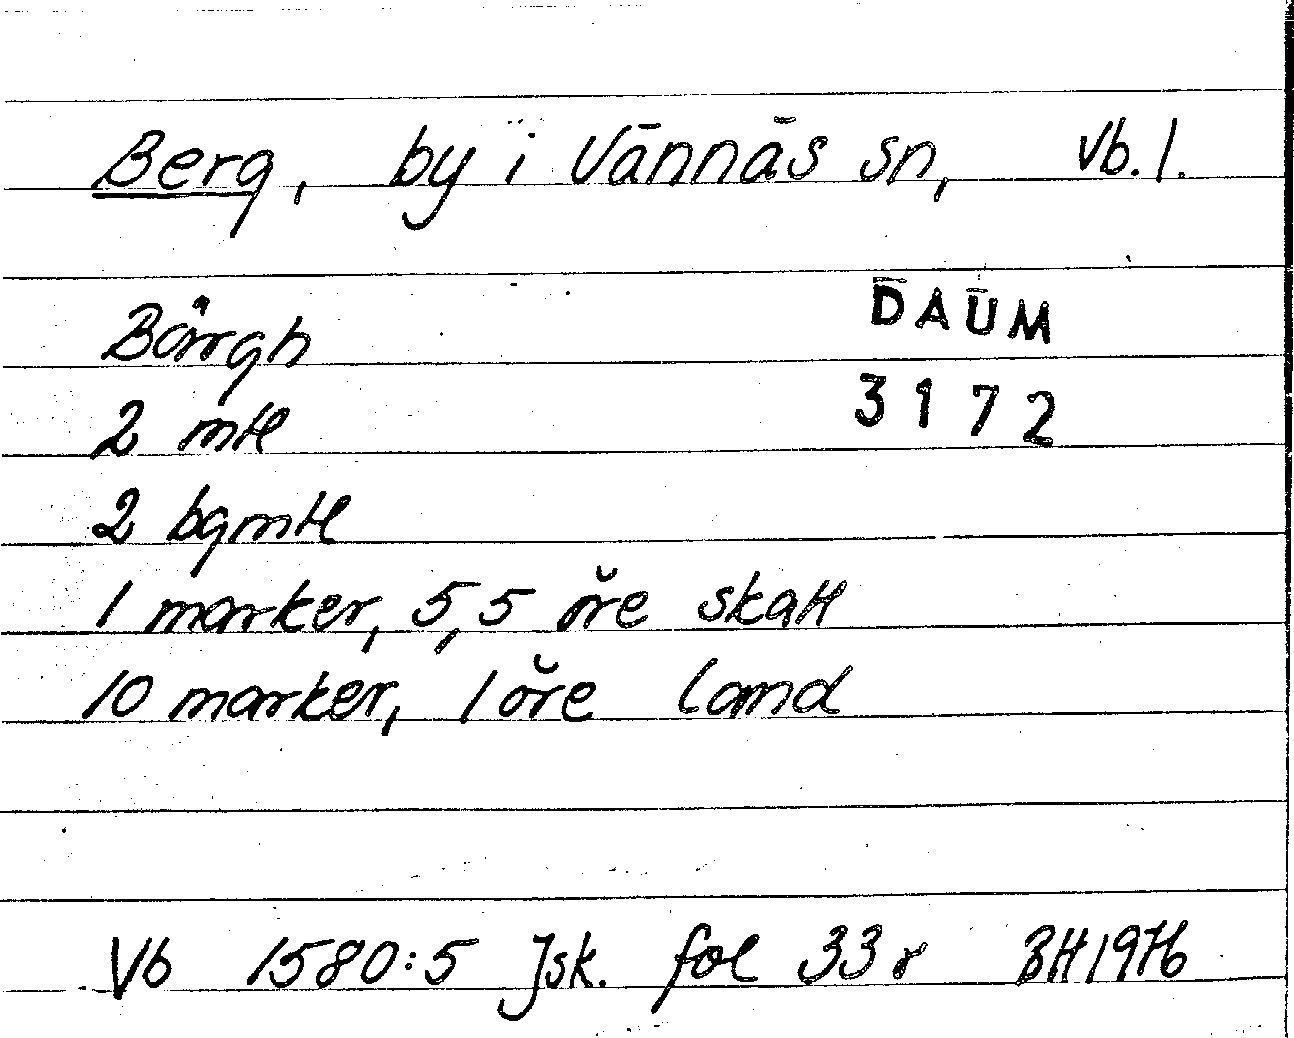 Berg, by i Vännäs sn, Vb. l.
Bårgh
DAUM
3172
2 mtl
2 bgmtl
1 marker, 5,5 öre skatt
10 marker, 1 öre land
Vb 1580:5 Jsk. fol 33 r BH 1976